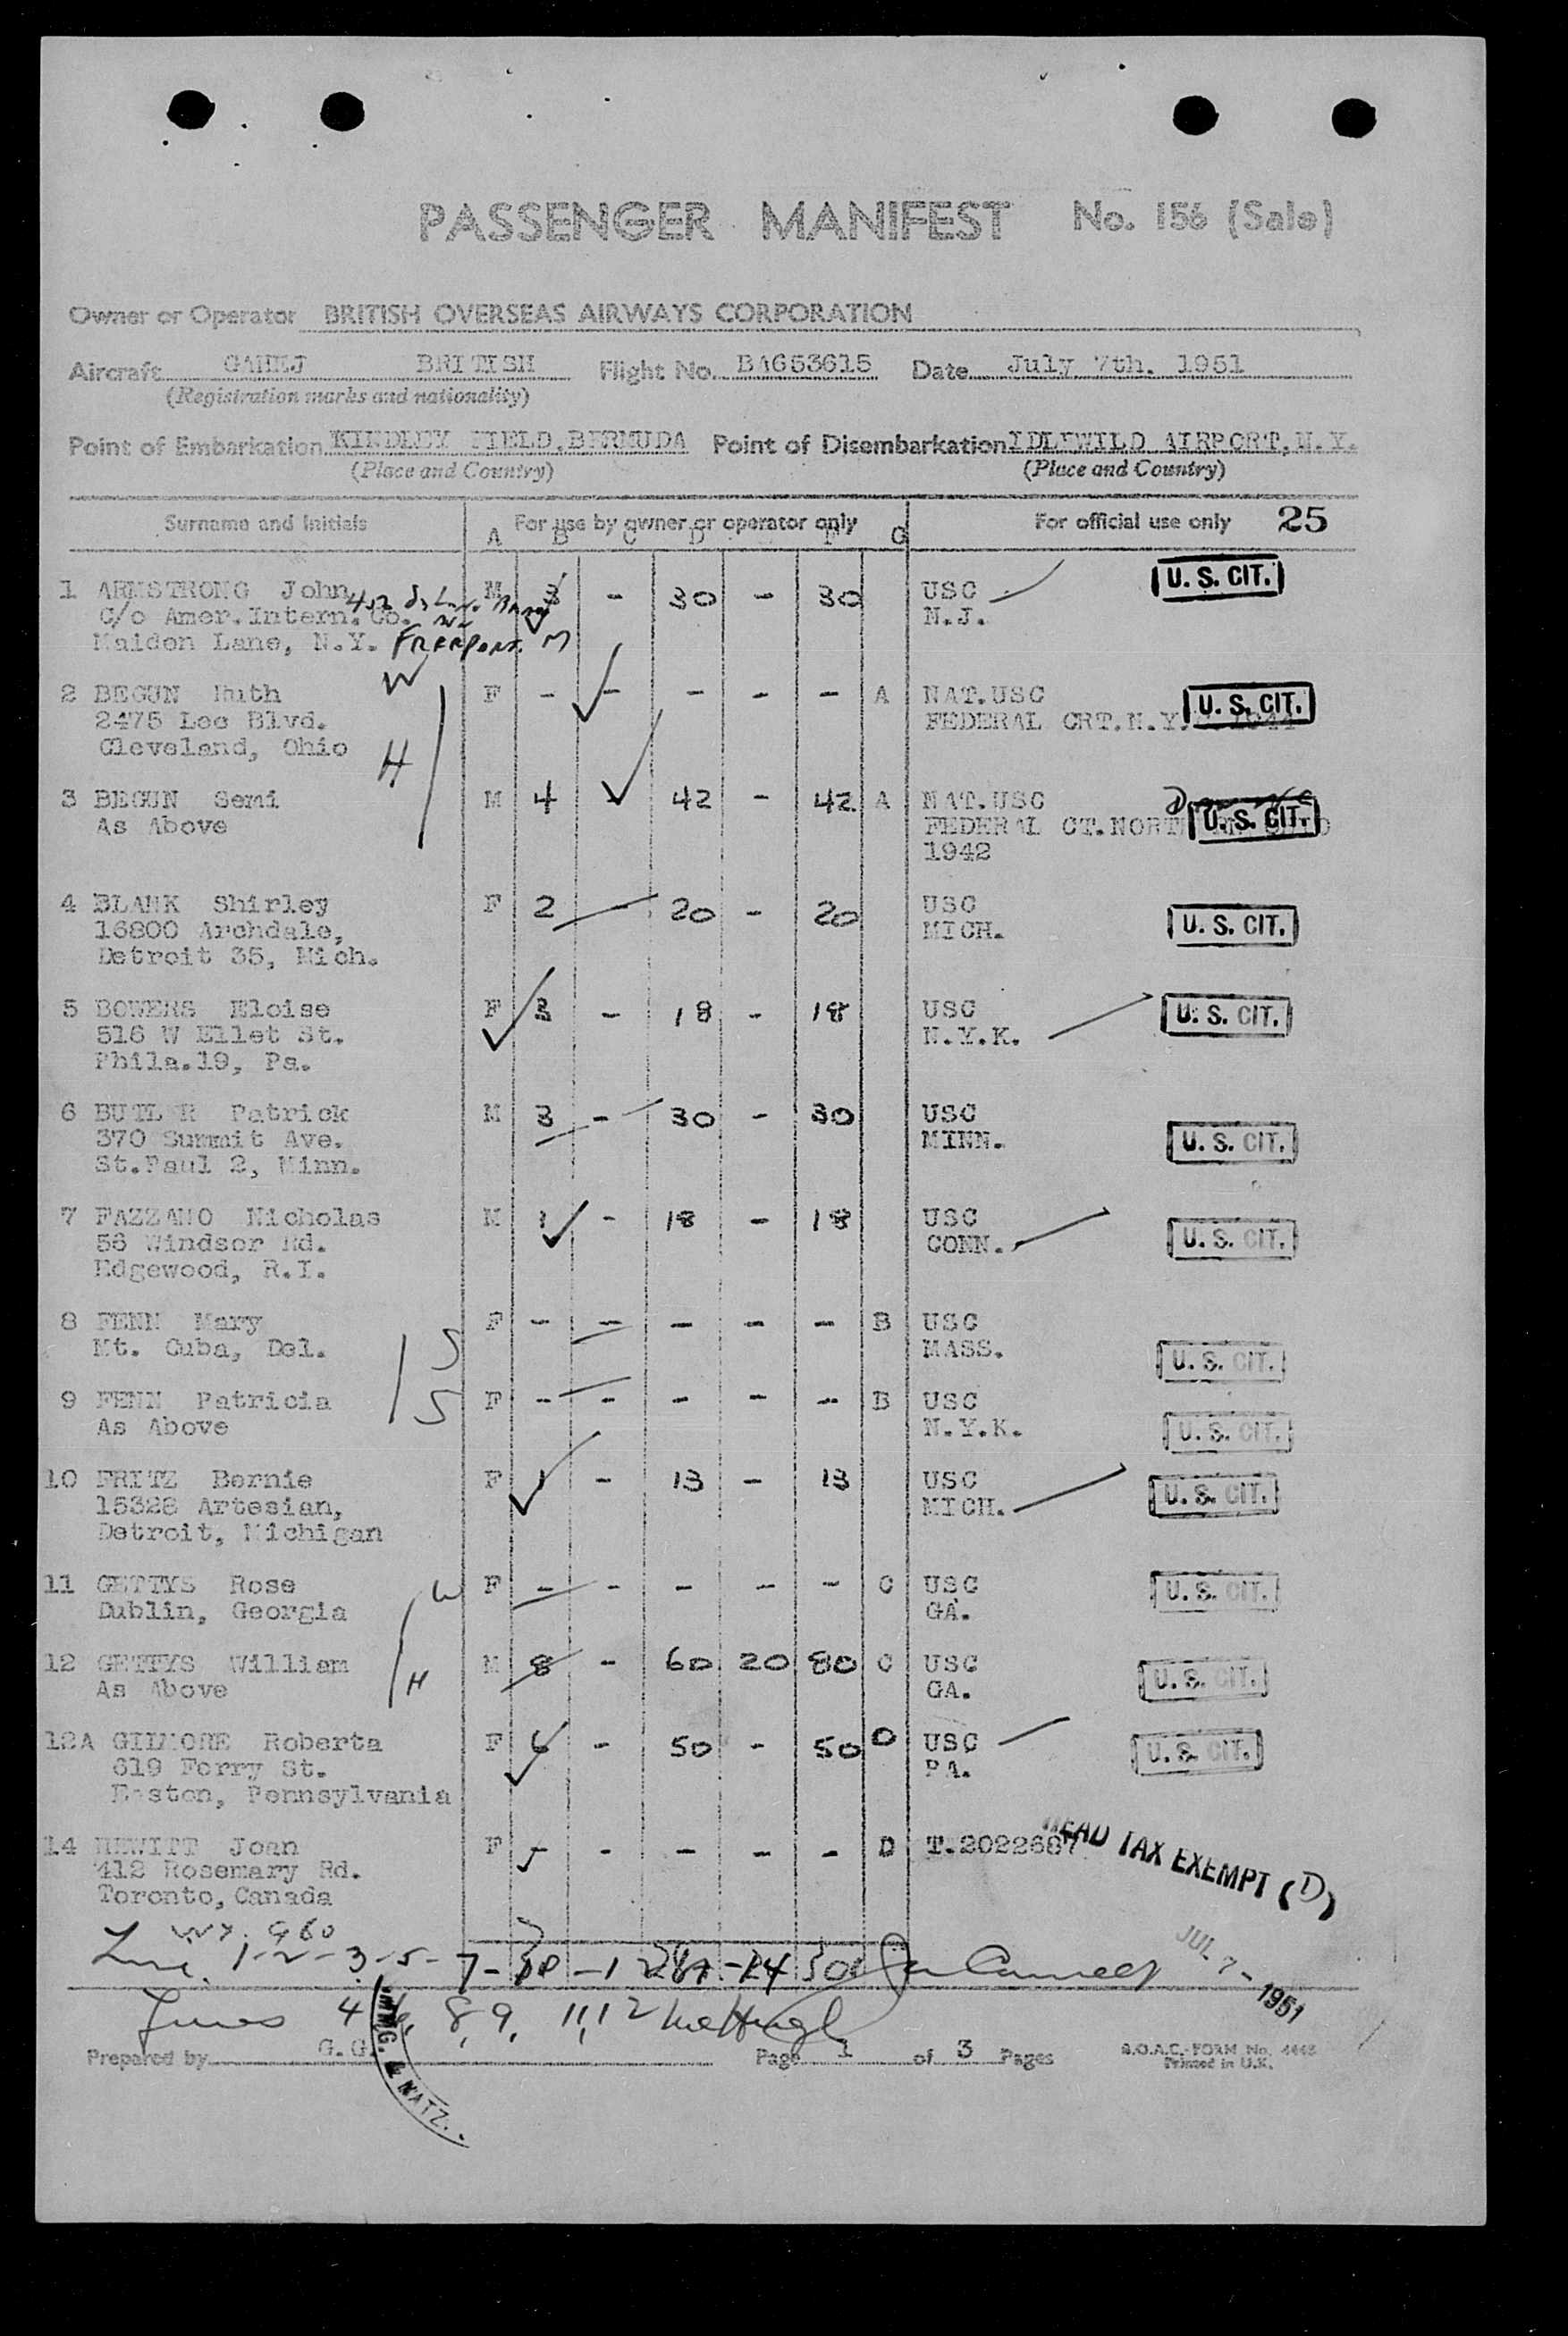 PASSENGER MANIFEST No. 156 (Sale)
Owner or Operator BRITISH OVERSEAS AIRWAYS CORPORATION
Aircraft GAHEJ BRITISH Flight No. BA653615 Date July 7th. 1951
(Registration marks and nationality)
Point of Embarkation KINDLEY FIELD, BERMUDA Point of Disembarkation IDLEWILD AIRPORT, N.Y.
(Place and Country) (Place and Country)
Surname and Initials For use by owner or operator only For official use only 25
A B C D F G
1 ARMSTRONG John M 3 - 30 - 30 USC U. S. CIT.
C/o Amer.Intern. Co. N.J.
Maiden Lane, N.Y. FREEPORT
W
2 BEGUN Ruth F - - - - - A NAT.USC U. S. CIT.
2475 Lee Blvd. FEDERAL CRT.N.Y. 1944
Cleveland, Ohio H
3 BEGUN Semi M 4 - 42 - 42 A NAT.USC
As Above FEDERAL CT.NORTH U. S. CIT.
1942
4 BLANK Shirley F 2 - 20 - 20 USC
16800 Archdale, MICH. U. S. CIT.
Detroit 35, Mich.
5 BOWERS Eloise F 3 - 18 - 18 USC U. S. CIT.
516 W Ellet St. N.Y.K.
Phila.19, Pa.
6 BUTLER Patrick M 3 - 30 - 30 USC
370 Summit Ave. MINN. U. S. CIT.
St.Paul 2, Minn.
7 FAZZANO Nicholas M 1 - 18 - 18 USC
56 Windsor Rd. CONN. U. S. CIT.
Edgewood, R.I.
8 FENN Mary F - - - - - B USC
Mt. Cuba, Del. S MASS. U. S. CIT.
9 FENN Patricia S F - - - - - B USC
As Above N.Y.K. U. S. CIT.
10 FRITZ Bernie F 1 - 13 - 13 USC
15328 Artesian, MICH. U. S. CIT.
Detroit, Michigan
11 GETTYS Rose W F - - - - - C USC U. S. CIT.
Dublin, Georgia GA.
12 GETTYS William M 8 - 60 20 80 C USC
As Above H GA. U. S. CIT.
12A GILMORE Roberta F 6 - 50 - 50 D USC
619 Ferry St. PA. U. S. CIT.
Easton, Pennsylvania
14 HEWITT Joan F - - - - D T.2022687 HEAD TAX EXEMPT (D)
412 Rosemary Rd.
Toronto, Canada
960
Line 1-2-3-5-7- JUL 7 - 1951
Lines 4 6, 8, 9, 11, 12
Prepared by G.G. Page 1 of 3 Pages
B.O.A.C.-FORM No. 4445
Printed in U.K.
IMMG. & NATZ.